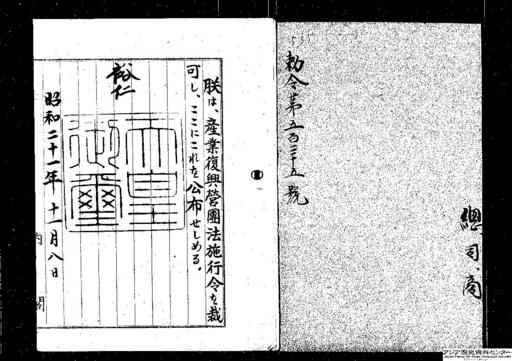 勅令第五百三十五號
總、司、商
朕は、産業復興營團法施行令を裁
可し、ここにこれを公布せしめる。
裕仁
天皇
御璽
昭和二十一年十一月八日
内閣
アジア歴史資料センター